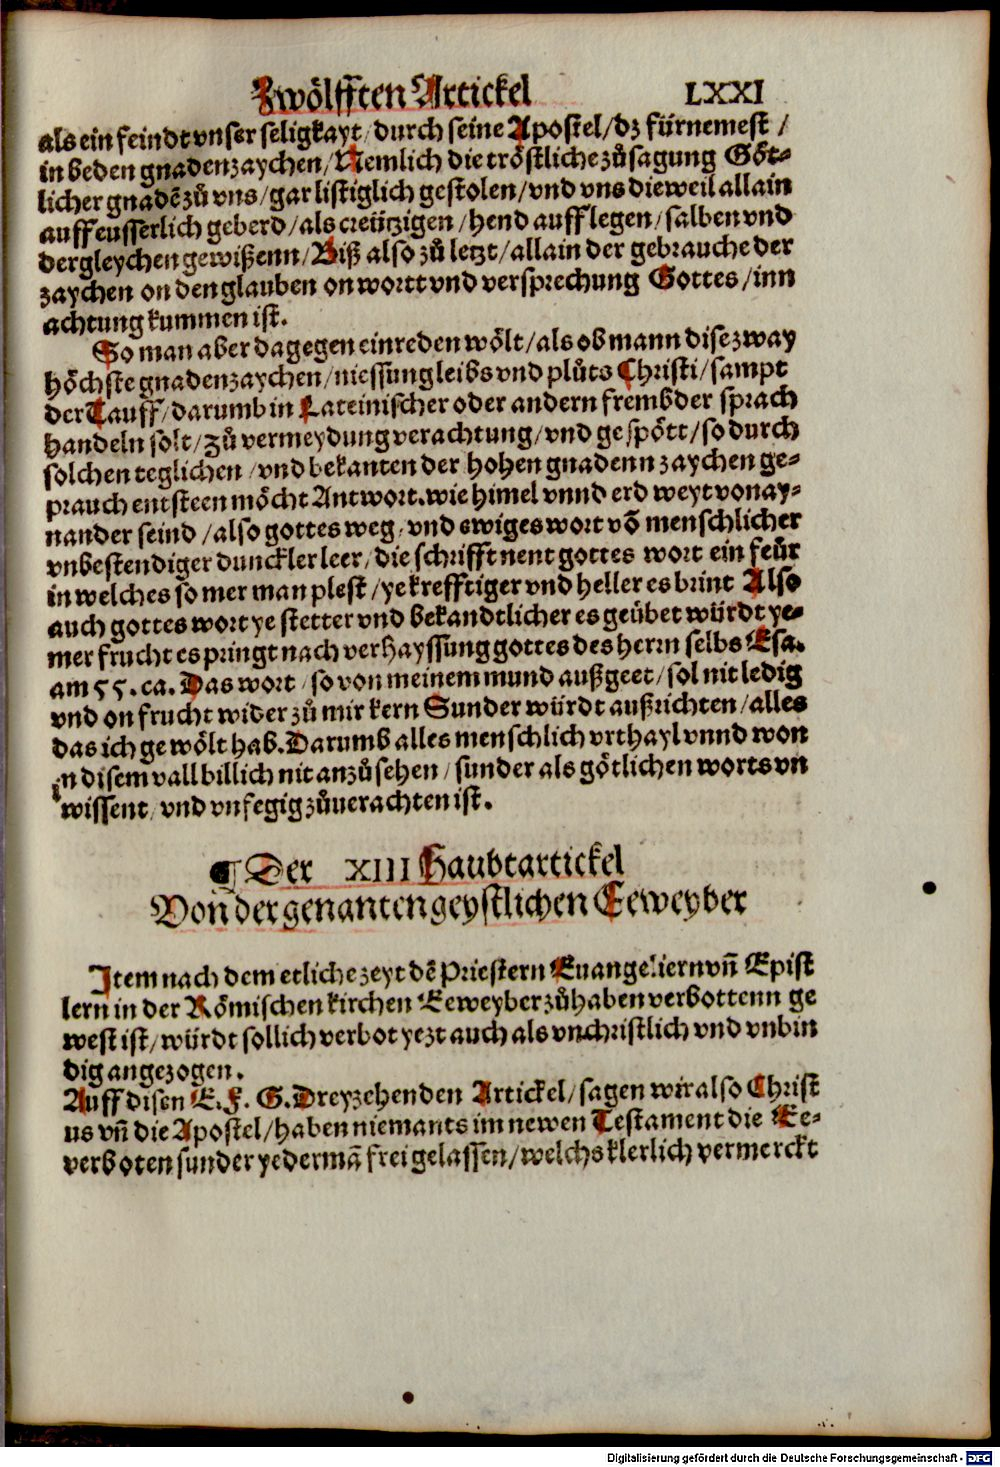 Zwoͤlfften Artickel LXXI
als ein feindt vnser seligkayt/durch seine Apostel/dz fürnemest/
in beden gnadenzaychen/Nemlich die troͤstliche zuͦsagung Goͤt-
licher gnadē zuͦ vns/gar listiglich gestolen/vnd vns dieweil allain
auff eusserlich geberd/als creützigen/hend aufflegen/salben vnd
dergleychen gewißenn/Biß also zuͦ letzt/allain der gebrauche der
zaychen on den glauben on wortt vnd versprechung Gottes/inn
achtung kummen ist.
So man aber dagegen einreden woͤlt/als ob mann dise zway
hoͤchste gnadenzaychen/niessung leibs vnd pluͦts Christi/sampt
der Tauff/darumb in Lateinischer oder andern frembder sprach
handeln solt/zuͦ vermeydung verachtung/vnd gespoͤtt/so durch
solchen teglichen/vnd bekanten der hohen gnadenn zaychen ge-
prauch entsteen moͤcht Antwort. wie himel vnnd erd weyt vonay-
nander seind/also gottes weg/vnd ewiges wort vō menschlicher
vnbestendiger dunckler leer/die schrifft nent gottes wort ein feür
in welches so mer man plest/ye krefftiger vnd heller es brint Also
auch gottes wort ye stetter vnd bekandtlicher es geübet würdt ye-
mer frucht es pringt nach verhayssung gottes des herrn selbs Esa.
am 55. ca. Das wort/so von meinem mund außgeet/sol nit ledig
vnd on frucht wider zuͦ mir kern Sunder würdt außrichten/alles
das ich gewoͤlt hab. Darumb alles menschlich vrthayl vnnd won
in disem vall billich nit anzuͦsehen/sunder als goͤtlichen worts vn
wissent/vnd vnfegig zuͦuerachten ist.
¶ Der XIII Haubtartickel
Von der genanten geystlichen Eeweyber
Item nach dem etliche zeyt dē Priestern Euangeliern vn̄ Epist
lern in der Roͤmischen kirchen Eeweyber zuͦhaben verbottenn ge
west ist/würdt sollich verbot yezt auch als vnchristlich vnd vnbin
dig angezogen.
Auff disen E. F. G. Dreyzehenden Artickel/sagen wir also Christ
us vn̄ die Apostel/haben niemants im newen Testament die Ee-
verboten sunder yedermā frei gelassen/welchs klerlich vermerckt
Digitalisierung gefördert durch die Deutsche Forschungsgemeinschaft - DFG